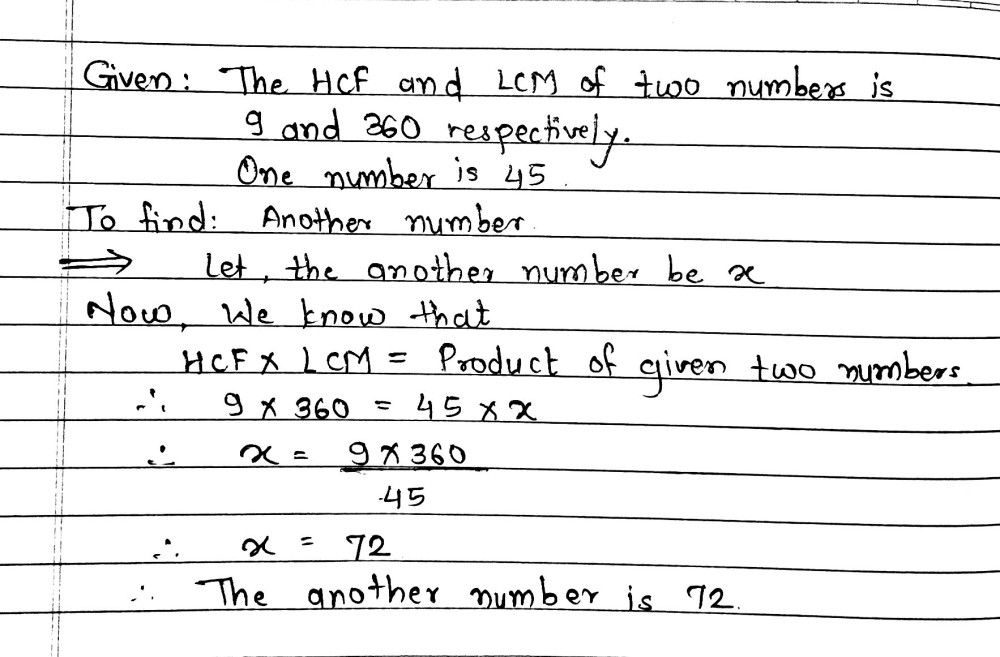 Given: The HCF and LCM of two numbers is
9 and 360 respectively.
One number is 45.
To find: Another number.
⟹ Let, the another number be x
Now, We know that
HCF × LCM = Product of given two numbers.
∴ 9 × 360 = 45 × x
∴ x = 9 × 360
45
∴ x = 72
∴ The another number is 72.